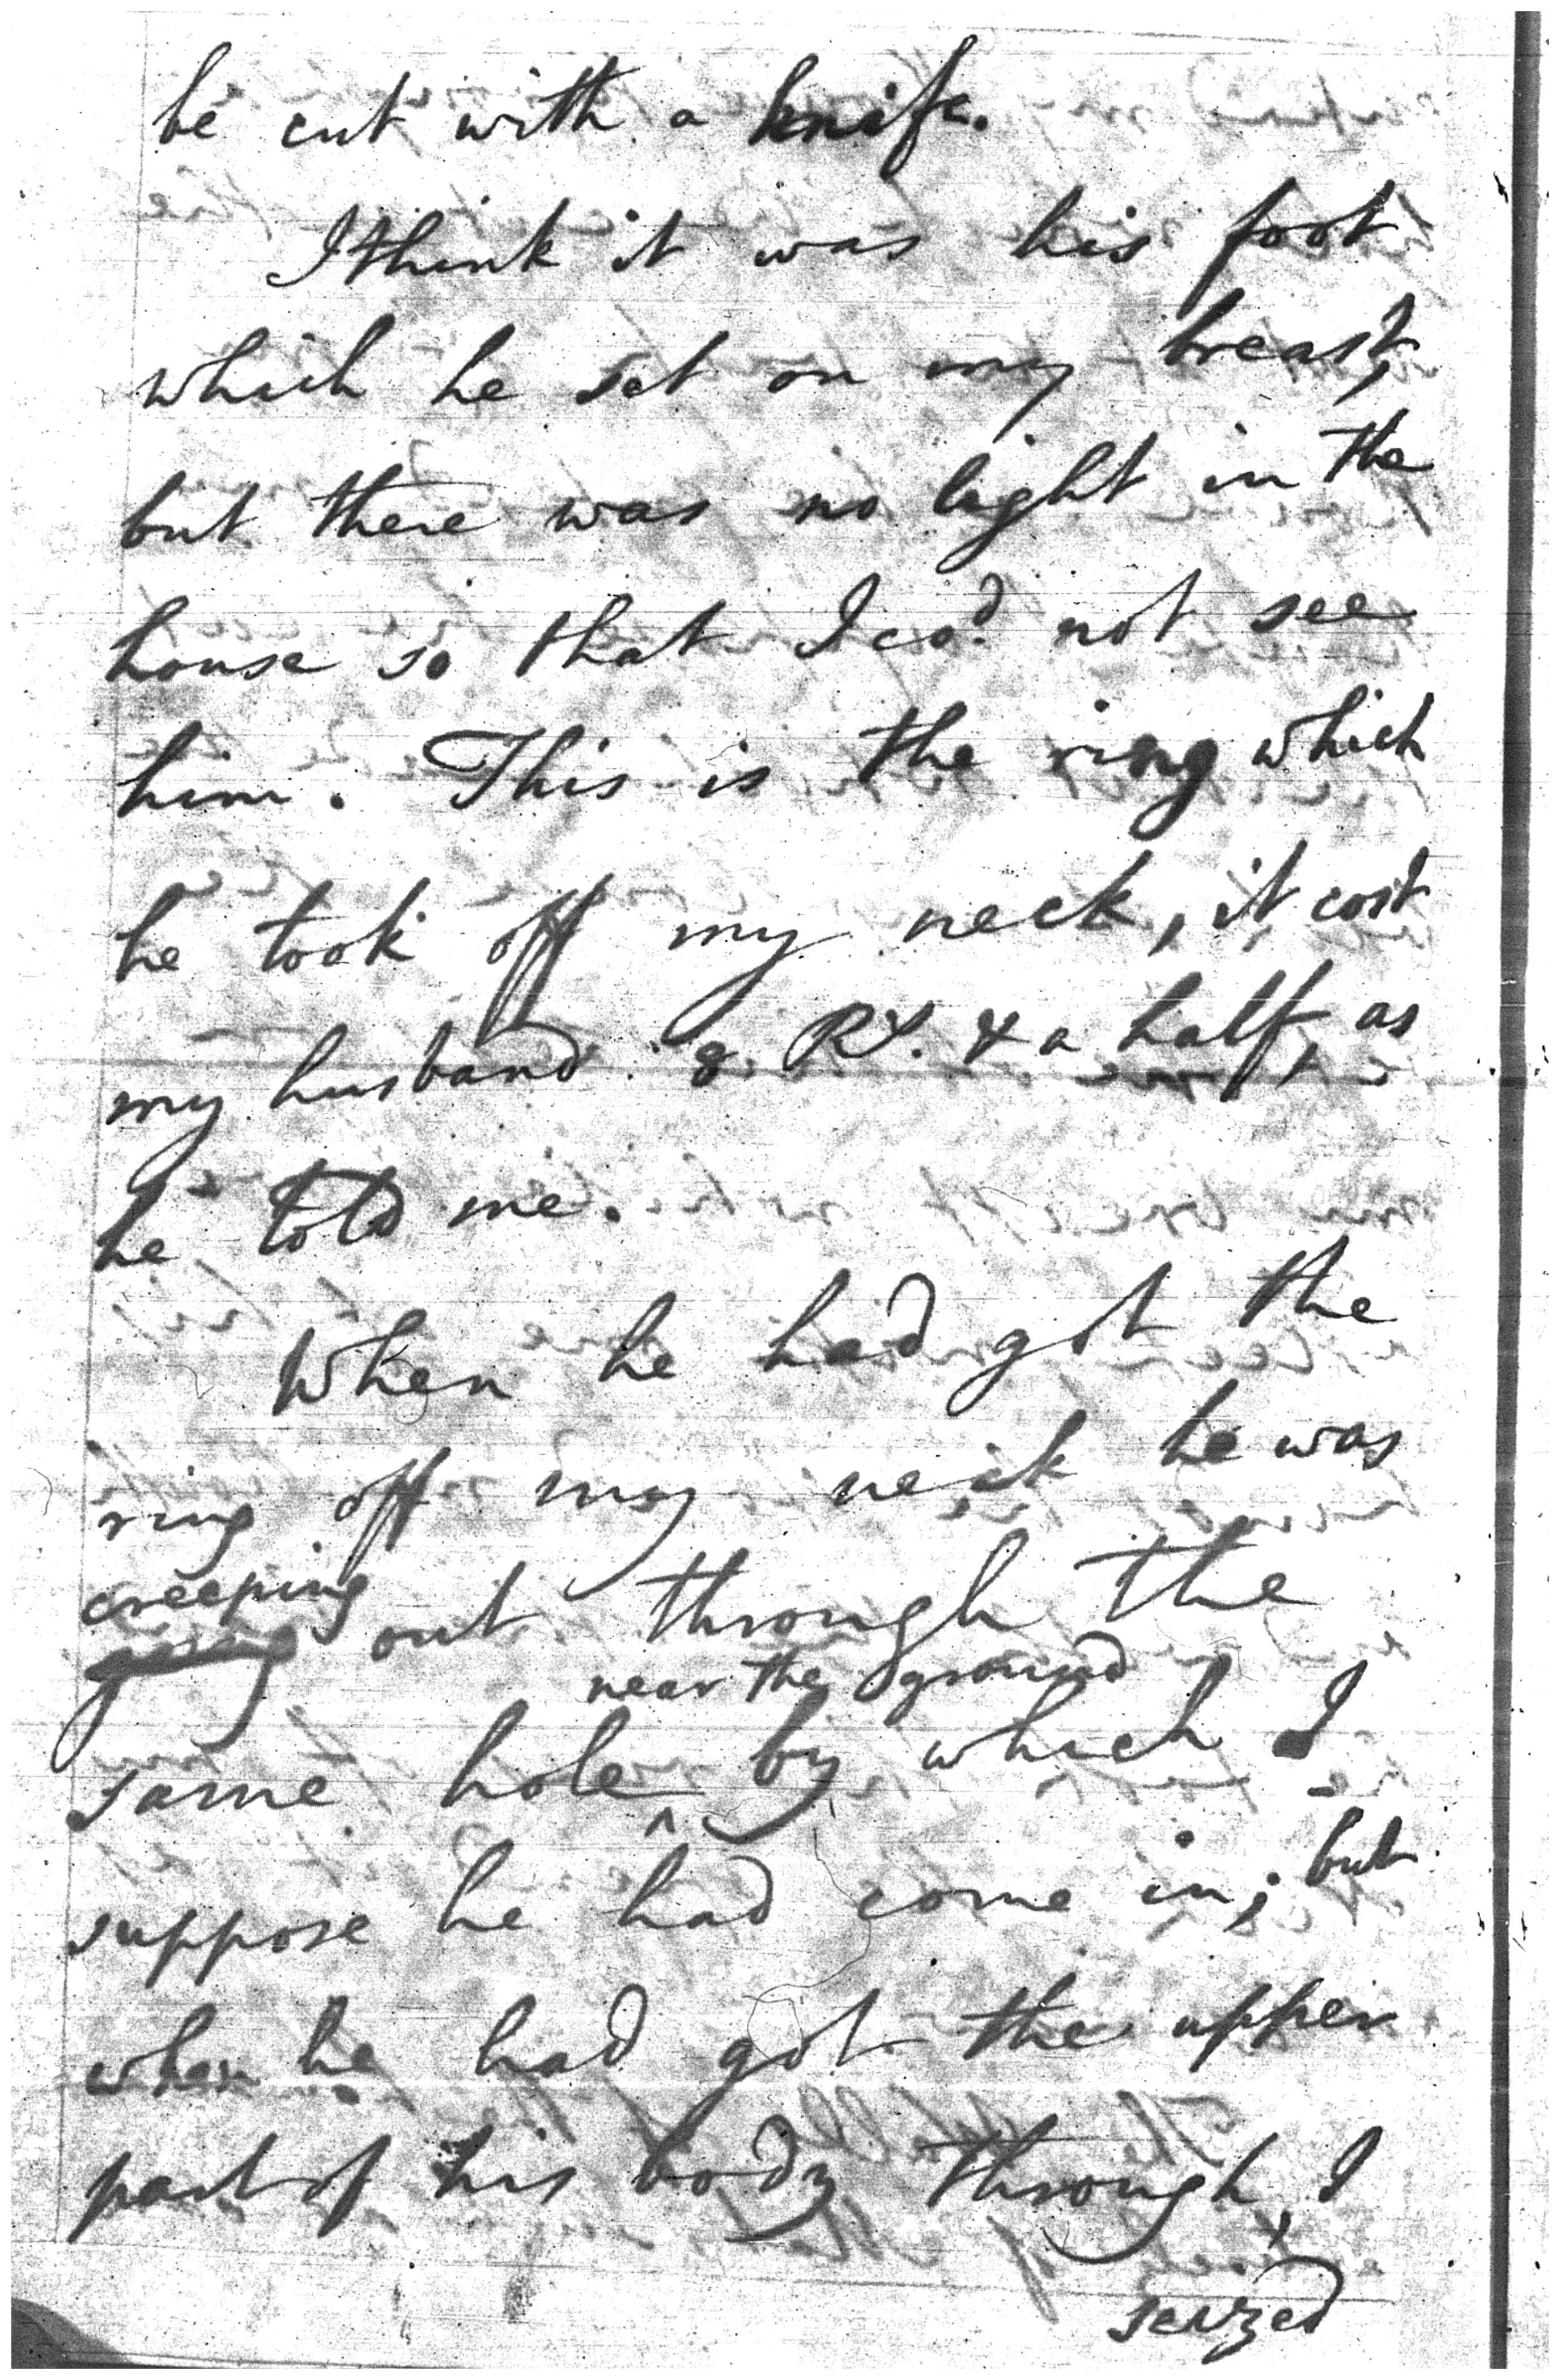 be cut with a knife.
I think it was his foot
which he set on my breast,
but there was no light in the
house so that I cod. not see
him. This is the ring which
he took off my neck, it cost
my husband 8 Rs. & a half, as
he told me.
When he had got the
ring off my neck he was
creeping
out through the
near the ground
same hole ^ by which I
suppose he had come in; but
when he had got the upper
part of his body through, I
seized